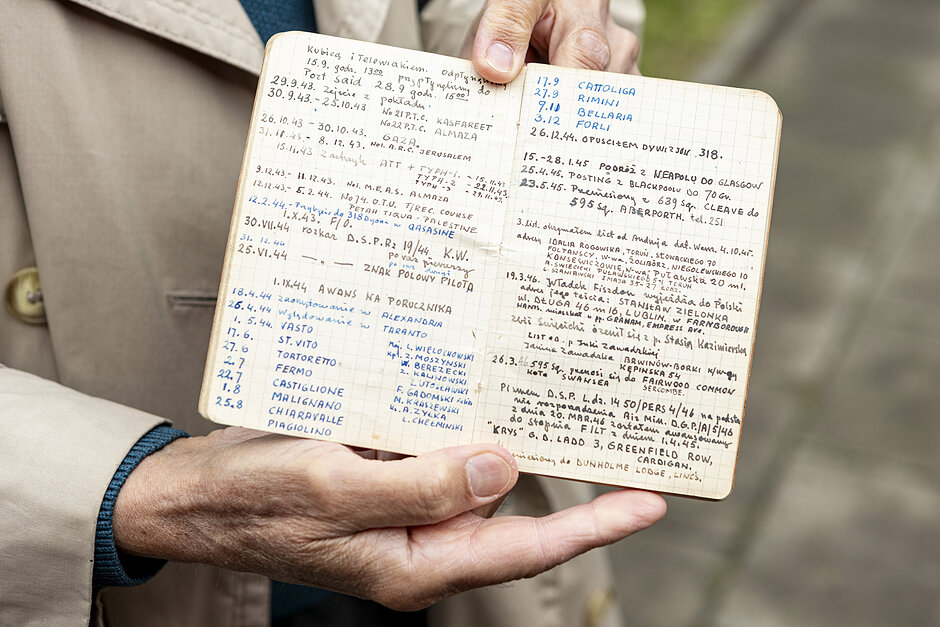 Kubicą, i Telewiakiem. odpłynął
15.9. godz. 13⁰⁰ przypłynęliśmy do
Port Said 28.9 godz. 15⁰⁰
29.9.43. Zejście z pokładu.
30.9.43.-25.10.43 No 21 P.T.C. KASFAREET
No 22 P.T.C. ALMAZA
26.10.43 - 30.10.43. GAZA.
31.10.43 - 8.12.43. No1. A.R.C. JERUSALEM
15.11.43 Zastrzyk ATT + TYPH-1. - 15.11.43
TYPH-2 - 22.11.43.
TYPH-3 - 29.11.43.
9.12.43 - 11.12.43. No1. M.E.A.S. ALMAZA
12.12.43 - 5.2.44. No 74. O.T.U. T/REC. COURSE
PETAH TIQUA - PALESTINE
12.2.44 - Przybycie do 318 Dyonu w QASASINE
1.X.43. F/O.
30.VII.44 rozkaz D.S.P.Rz 19/44 K.W.
po raz pierwszy
31.12.44 po raz drugi
25.VI.44 — „ — „ — ZNAK POLOWY PILOTA
1.IX.44 AWANS NA PORUCZNIKA
18.4.44 zaokrętowanie w ALEXANDRIA
26.4.44 wylądowanie w TARANTO
1.5.44. VASTO
17.6. ST. VITO
27.6 TORTORETTO
2.7 FERMO
22.7 CASTIGLIONE
1.8 MALIGNANO
25.8 CHIARAVALLE
PIAGIOLINO
Maj. L. WIELOCHOWSKI
Kpt. Z. MOSZYŃSKI
W. BEREZECKI
Z. KALINOWSKI
LUTOSŁAWSKI
F. GADOMSKI
M. KRASZEWSKI
A. ZYŁKA
L. CHEŁMIŃSKI
17.9 CATTOLIGA
27.9 RIMINI
9.11 BELLARIA
3.12 FORLI
26.12.44. OPUŚCIŁEM DYWIZJON 318.
15.-28.1.45 PODRÓŻ Z NEAPOLU DO GLASGOW
25.4.45. POSTING z BLACKPOOLU DO 70 Gr.
23.5.45. Przeniesiony z 639 Sq. CLEAVE do
595 Sq. ABERPORTH. tel. 251
3. list. otrzymałem list od Andrzeja dat. Warsz. 4.10.45.
adresy IDALIA ROGOWSKA, TORUŃ, SŁOWACKIEGO 70
FOLTAŃSCY, W-wa, ŻOLIBÓRZ, NIEGOLEWSKIEGO 10
KONSEWICZOWIE, W-wa, PUŁAWSKA 20 m 1.
A. ŚWIECICKI PUŁAWSKIEGO 5-5 TORUŃ
L. SZANIAWSKI 1 MAJA 35-27 ŁÓDŹ
19.3.46. Władek Fiszdon wyjeżdża do Polski
adres jego teścia: STANISŁAW ZIELONKA
ul. DŁUGA 46 m 16, LUBLIN. w FARNBOROUGH
HANTS. mieszkał: Mr GRAHAM, EMPRESS AVE.
Zbij Świecicki ożenił się z p. Stasią Kazimierską
LIST OD p. Inki Zawadzkiej
Janina Zawadzka BRWINÓW-BORKI
KĘPIŃSKA 54
26.3.46 595 Sq. przenosi się do FAIRWOOD COMMON
koło SWANSEA
Pismem D.S.P. L.dz. 1450/PERS 4/46 na podsta-
wie rozporządzenia Air Min. D.G.P./A/5/46
z dnia 20.MAR.46 zostałem awansowany
do stopnia F/LT z dniem 1.4.45.
"KRYS" G. D. LADD 3, GREENFIELD ROW,
CARDIGAN.
Przeniesiony do DUNHOLME LODGE, LINCS.